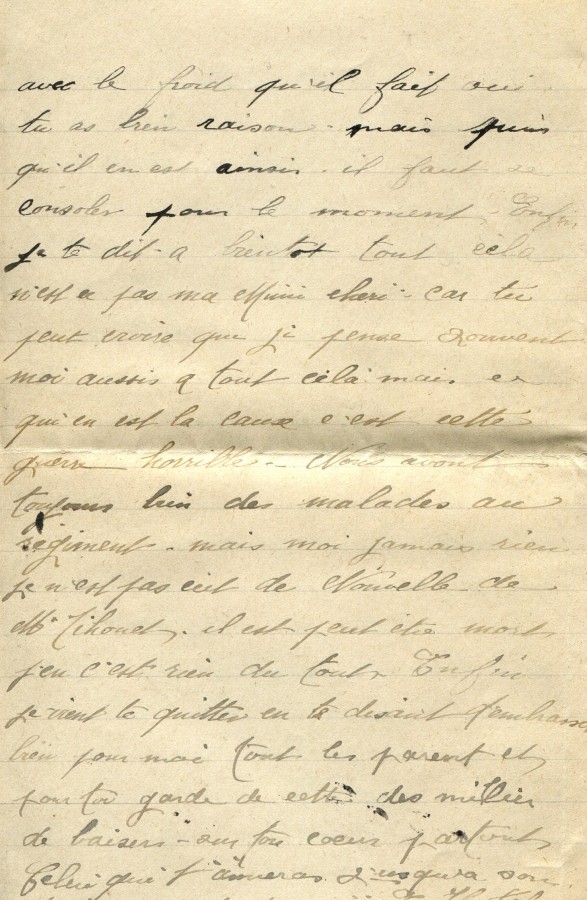 avec le froid qu'il fait oui
tu as bien raison - mais puis
qu'il en est ainsi - il faut se
consoler pour le moment - Enfin
je te dit - a bientot tout cela
n'est ce pas ma Mimi cheri - car tu
peut croire que je pense souvent
moi aussis a tout cela mais ce
qui en est la cause c'est cette
guerre horrible - Nous avont
toujours bien des malades au
regiment - mais moi jamais rien
je n'est pas eut de Nouvelle de
Mr il est peut etre mort
j'en c'est rien du tout - Enfin
je vient te quitter en te disant d'embrasser
bien pour moi tout les parent et
pour toi garde de cette des millier
de baisers - sur ton coeur partout
Celui qui t'aimeras jusqu'a son